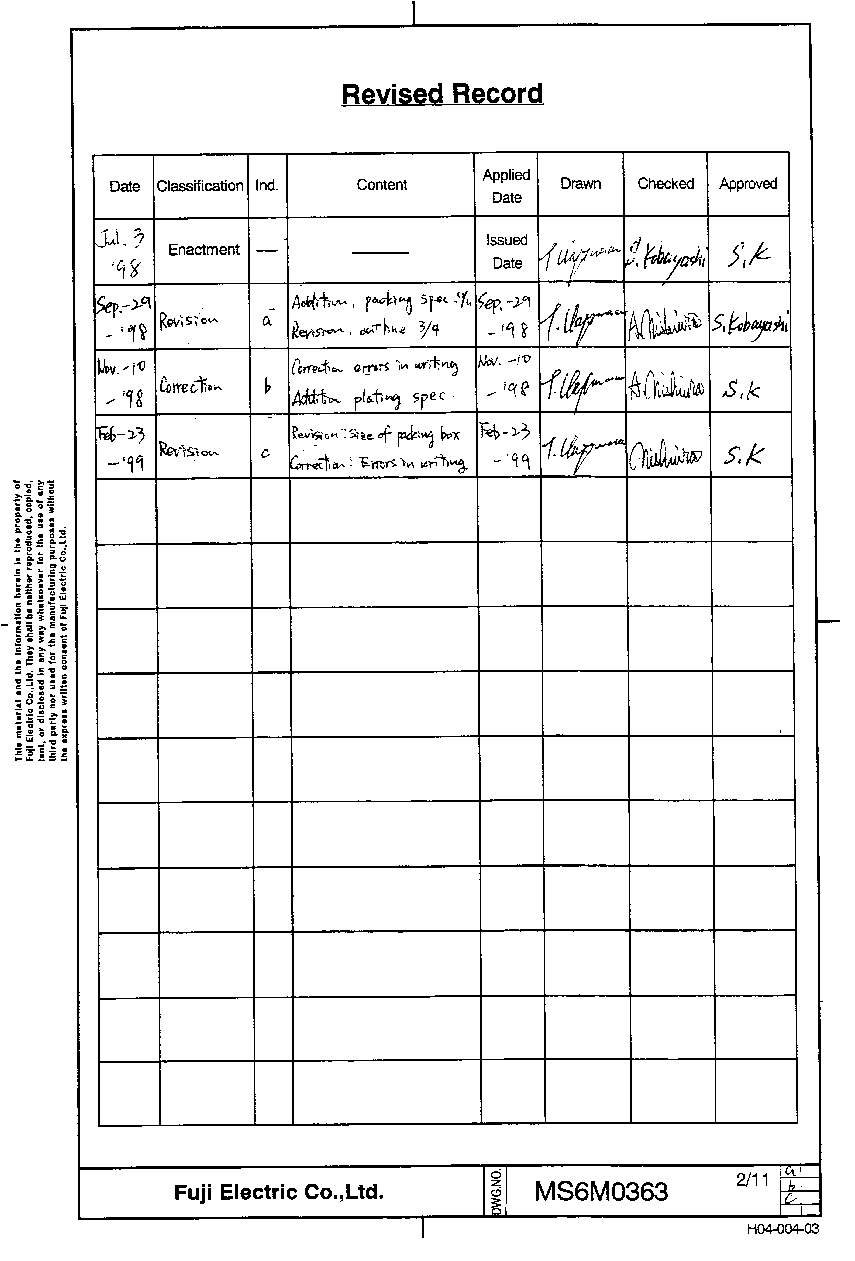 Revised Record
Date Classification Ind. Content Applied Date Drawn Checked Approved
Jul. 3 '98 Enactment — —— Issued Date S. Kobayashi S.K
Sep.-29 -'98 Revision a Addition, packing spec Sep.-29 -'98 S. Kobayashi
Revision, outline 3/4
Nov.-10 -'98 Correction b Correction errors in writing Nov.-10 -'98 S.K
Addition plating spec.
Feb-23 -'99 Revision c Revision: Size of packing box Feb-23 -'99 S.K
Correction: Errors in writing
This material and the information herein is the property of
Fuji Electric Co.,Ltd. They shall be neither reproduced, copied,
lent, or disclosed in any way whatsoever for the use of any
third party nor used for the manufacturing purposes without
the express written consent of Fuji Electric Co.,Ltd.
Fuji Electric Co.,Ltd.
DWG.NO.
MS6M0363
2/11
a
b
c
H04-004-03